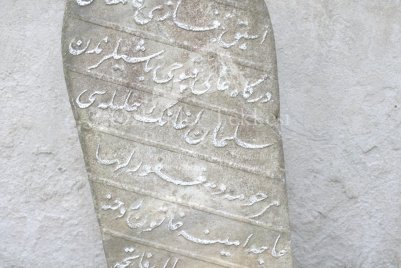 اسبق
دركاه عالى قپوجى باشيلرندن
سليمان اغانك حليله سى
مرحومه و مغفور لها
حاجه امينه خاتون روحنه
الفاتحه